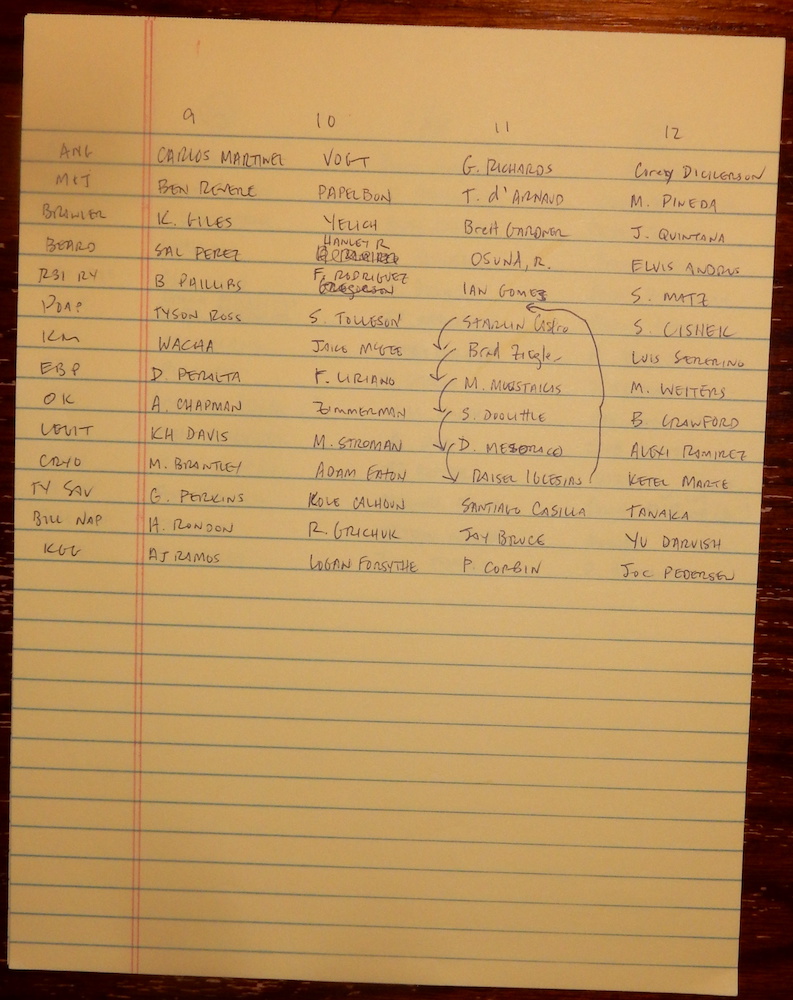 9 10 11 12
ANG CARLOS MARTINEZ VOGT G. RICHARDS Corey DICKERSON
MCT BEN REVERE PAPELBON T. d'ARNAUD M. PINEDA
BRAWLER K. GILES YELICH Brett GARDNER J. QUINTANA
BEARD SAL PEREZ HANLEY R OSUNA, R. ELVIS ANDRUS
RBI RY B PHILLIPS F. RODRIGUEZ GREGERSON IAN GOMES S. MATZ
TYSON ROSS S. TOLLESON STARLIN Castro S. CISHEK
KM WACHA JAKE MCGEE Brad Ziegler LUIS SEVERINO
EBP D. PERALTA F. LIRIANO M. MOUSTAKAS M. WEITERS
OK A. CHAPMAN ZIMMERMAN S. DOOLITTLE B. CRAWFORD
LEVIT KH DAVIS M. STROMAN D. MESORACO ALEXI RAMIREZ
CRYO M. BRANTLEY ADAM EATON RAISEL IGLESIAS KETEL MARTE
TY SAV G. PERKINS KOLE CALHOUN SANTIAGO CASILLA TANAKA
BILL NAP H. RONDON R. GRICHUK JAY BRUCE YU DARVISH
KGG AJ RAMOS LOGAN FORSYTHE P. CORBIN JOC PEDERSEN